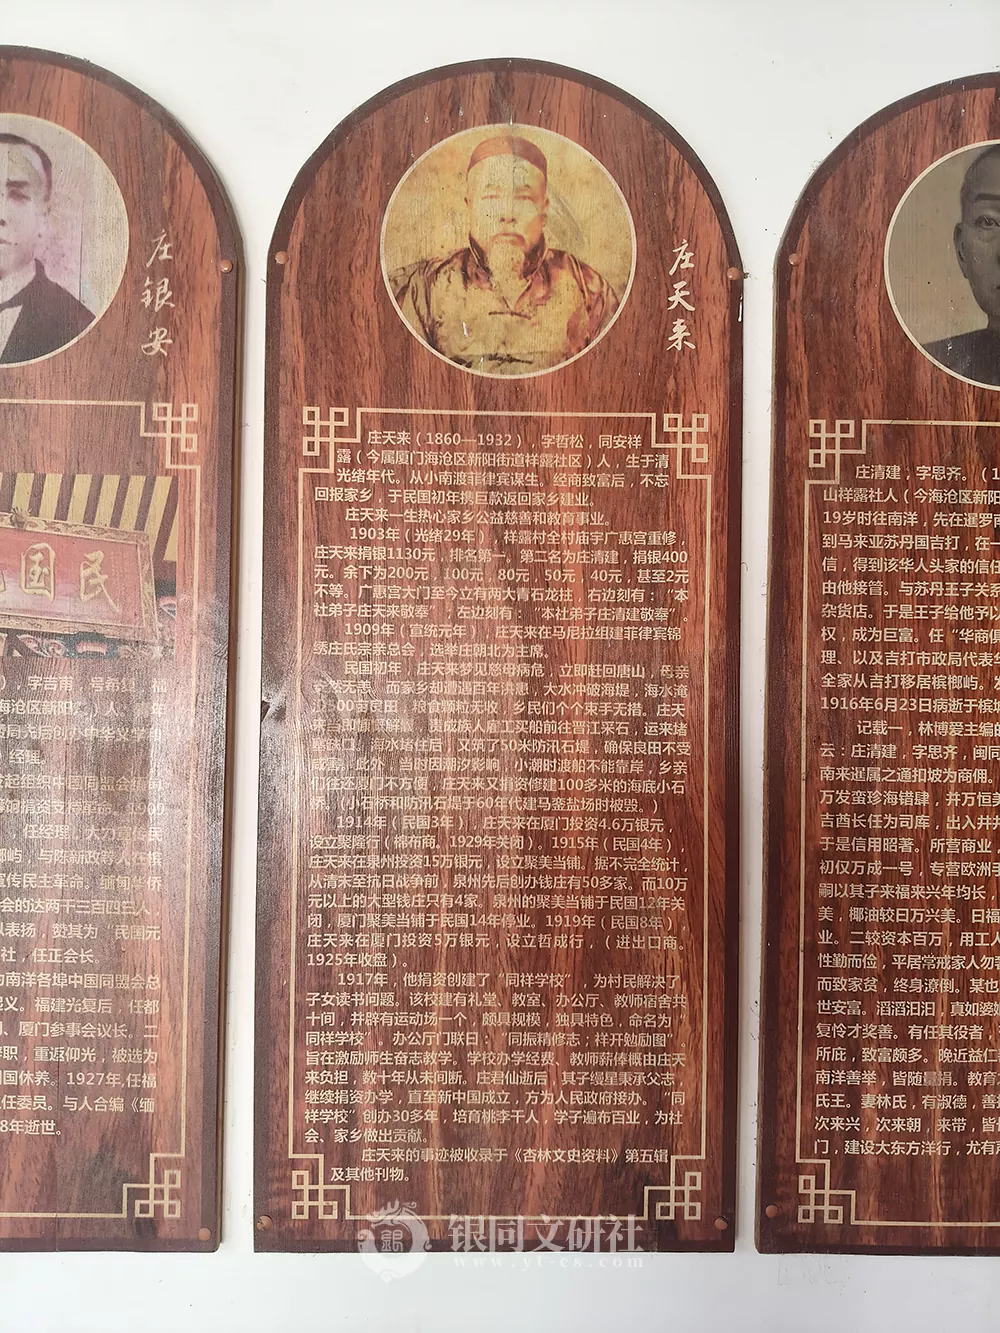 庄银安
民国
），字吉甫，号希复，福
任经理，大力宣传民
榔屿，与陈新政等人在槟
宣传民主革命。缅甸华侨
会的达两千三百四三人，
以表扬，赞其为“民国元
社，任正会长。
为南洋各埠中国同盟会总
起义。福建光复后，任都
司、厦门参事会议长。二
辞职，重返仰光，被选为
回国休养。1927年,任福
主任委员。与人合编《缅
8年逝世。
庄天来
庄天来（1860—1932），字哲松，同安祥
露（今属厦门海沧区新阳街道祥露社区）人，生于清
光绪年代。从小南渡菲律宾谋生。经商致富后，不忘
回报家乡，于民国初年携巨款返回家乡建业。
庄天来一生热心家乡公益慈善和教育事业。
1903年（光绪29年），祥露村全村庙宇广惠宫重修，
庄天来捐银1130元，排名第一。第二名为庄清建，捐银400
元。余下为200元，100元，80元，50元，40元，甚至2元
不等。广惠宫大门至今立有两大青石龙拄，右边刻有：“本
社弟子庄天来敬奉”，左边刻有：“本社弟子庄清建敬奉”。
1909年（宣统元年），庄天来在马尼拉组建菲律宾锦
绣庄氏宗亲总会，选举庄朝北为主席。
民国初年，庄天来梦见慈母病危，立即赶回唐山，母亲
安然无恙。而家乡却遭遇百年洪患，大水冲破海堤，海水淹
没500亩良田，粮食颗粒无收，乡民们个个束手无措。庄天
来当即慷慨解囊，责成族人雇工买船前往晋江采石，运来堵
塞缺口。海水堵住后，又筑了50米防汛石堤，确保良田不受
威害。此外，当时因潮汐影响，小潮时渡船不能靠岸，乡亲
们往还厦门不方便，庄天来又捐资修建100多米的海底小石
桥。(小石桥和防汛石堤于60年代建马銮盐场时被毁。)
1914年（民国3年），庄天来在厦门投资4.6万银元，
设立聚隆行（棉布商。1929年关闭）。1915年（民国4年），
庄天来在泉州投资15万银元，设立聚美当铺。据不完全统计，
从清末至抗日战争前，泉州先后创办钱庄有50多家。而10万
元以上的大型钱庄只有4家。泉州的聚美当铺于民国12年关
闭，厦门聚美当铺于民国14年停业。1919年（民国8年），
庄天来在厦门投资5万银元，设立哲成行，（进出口商。
1925年收盘）。
1917年，他捐资创建了“同祥学校”，为村民解决了
子女读书问题。该校建有礼堂、教室、办公厅、教师宿舍共
十间，并辟有运动场一个，颇具规模，独具特色，命名为“
同祥学校”。办公厅门联曰：“同振精修志；祥开勉励图”。
旨在激励师生奋志教学。学校办学经费、教师薪俸概由庄天
来负担，数十年从未间断。庄君仙逝后，其子缦星秉承父志，
继续捐资办学，直至新中国成立，方为人民政府接办。“同
祥学校”创办30多年，培育桃李千人，学子遍布百业，为社
会、家乡做出贡献。
庄天来的事迹被收录于《杏林文史资料》第五辑
及其他刊物。
庄清建，字思齐。（1
山祥露社人（今海沧区新阳
19岁时往南洋，先在暹罗南
到马来亚苏丹国吉打，在一
信，得到该华人头家的信任
由他接管。与苏丹王子关系
杂货店。于是王子给他予以
权，成为巨富。任“华商俱
理、以及吉打市政局代表华
全家从吉打移居槟榔屿。发
1916年6月23日病逝于槟城
记载一，林博爱主编的
云：庄清建，字思齐，闽同
南来暹属之通扣坡为商佣。
万发蛮珍海错肆，并万恒美
吉酋长任为司库，出入井井
于是信用昭著。所营商业，
初仅万成一号，专营欧洲手
嗣以其子来福来兴年均长，
美，椰油较日万兴美。曰福
业。二较资本百万，用工人
性勤而俭，平居常戒家人勿
而致家贫，终身潦倒。某也
世安富。滔滔汨汨，真如婆
复怜才奖善。有任其役者，
所庇，致富颇多。晚近益仁
南洋善举，皆随量捐。教育
氏王。妻林氏，有淑德，善
次来兴，次来朝，来带，皆
门，建设大东方洋行，尤有
银同文研社
www.yt-cs.com